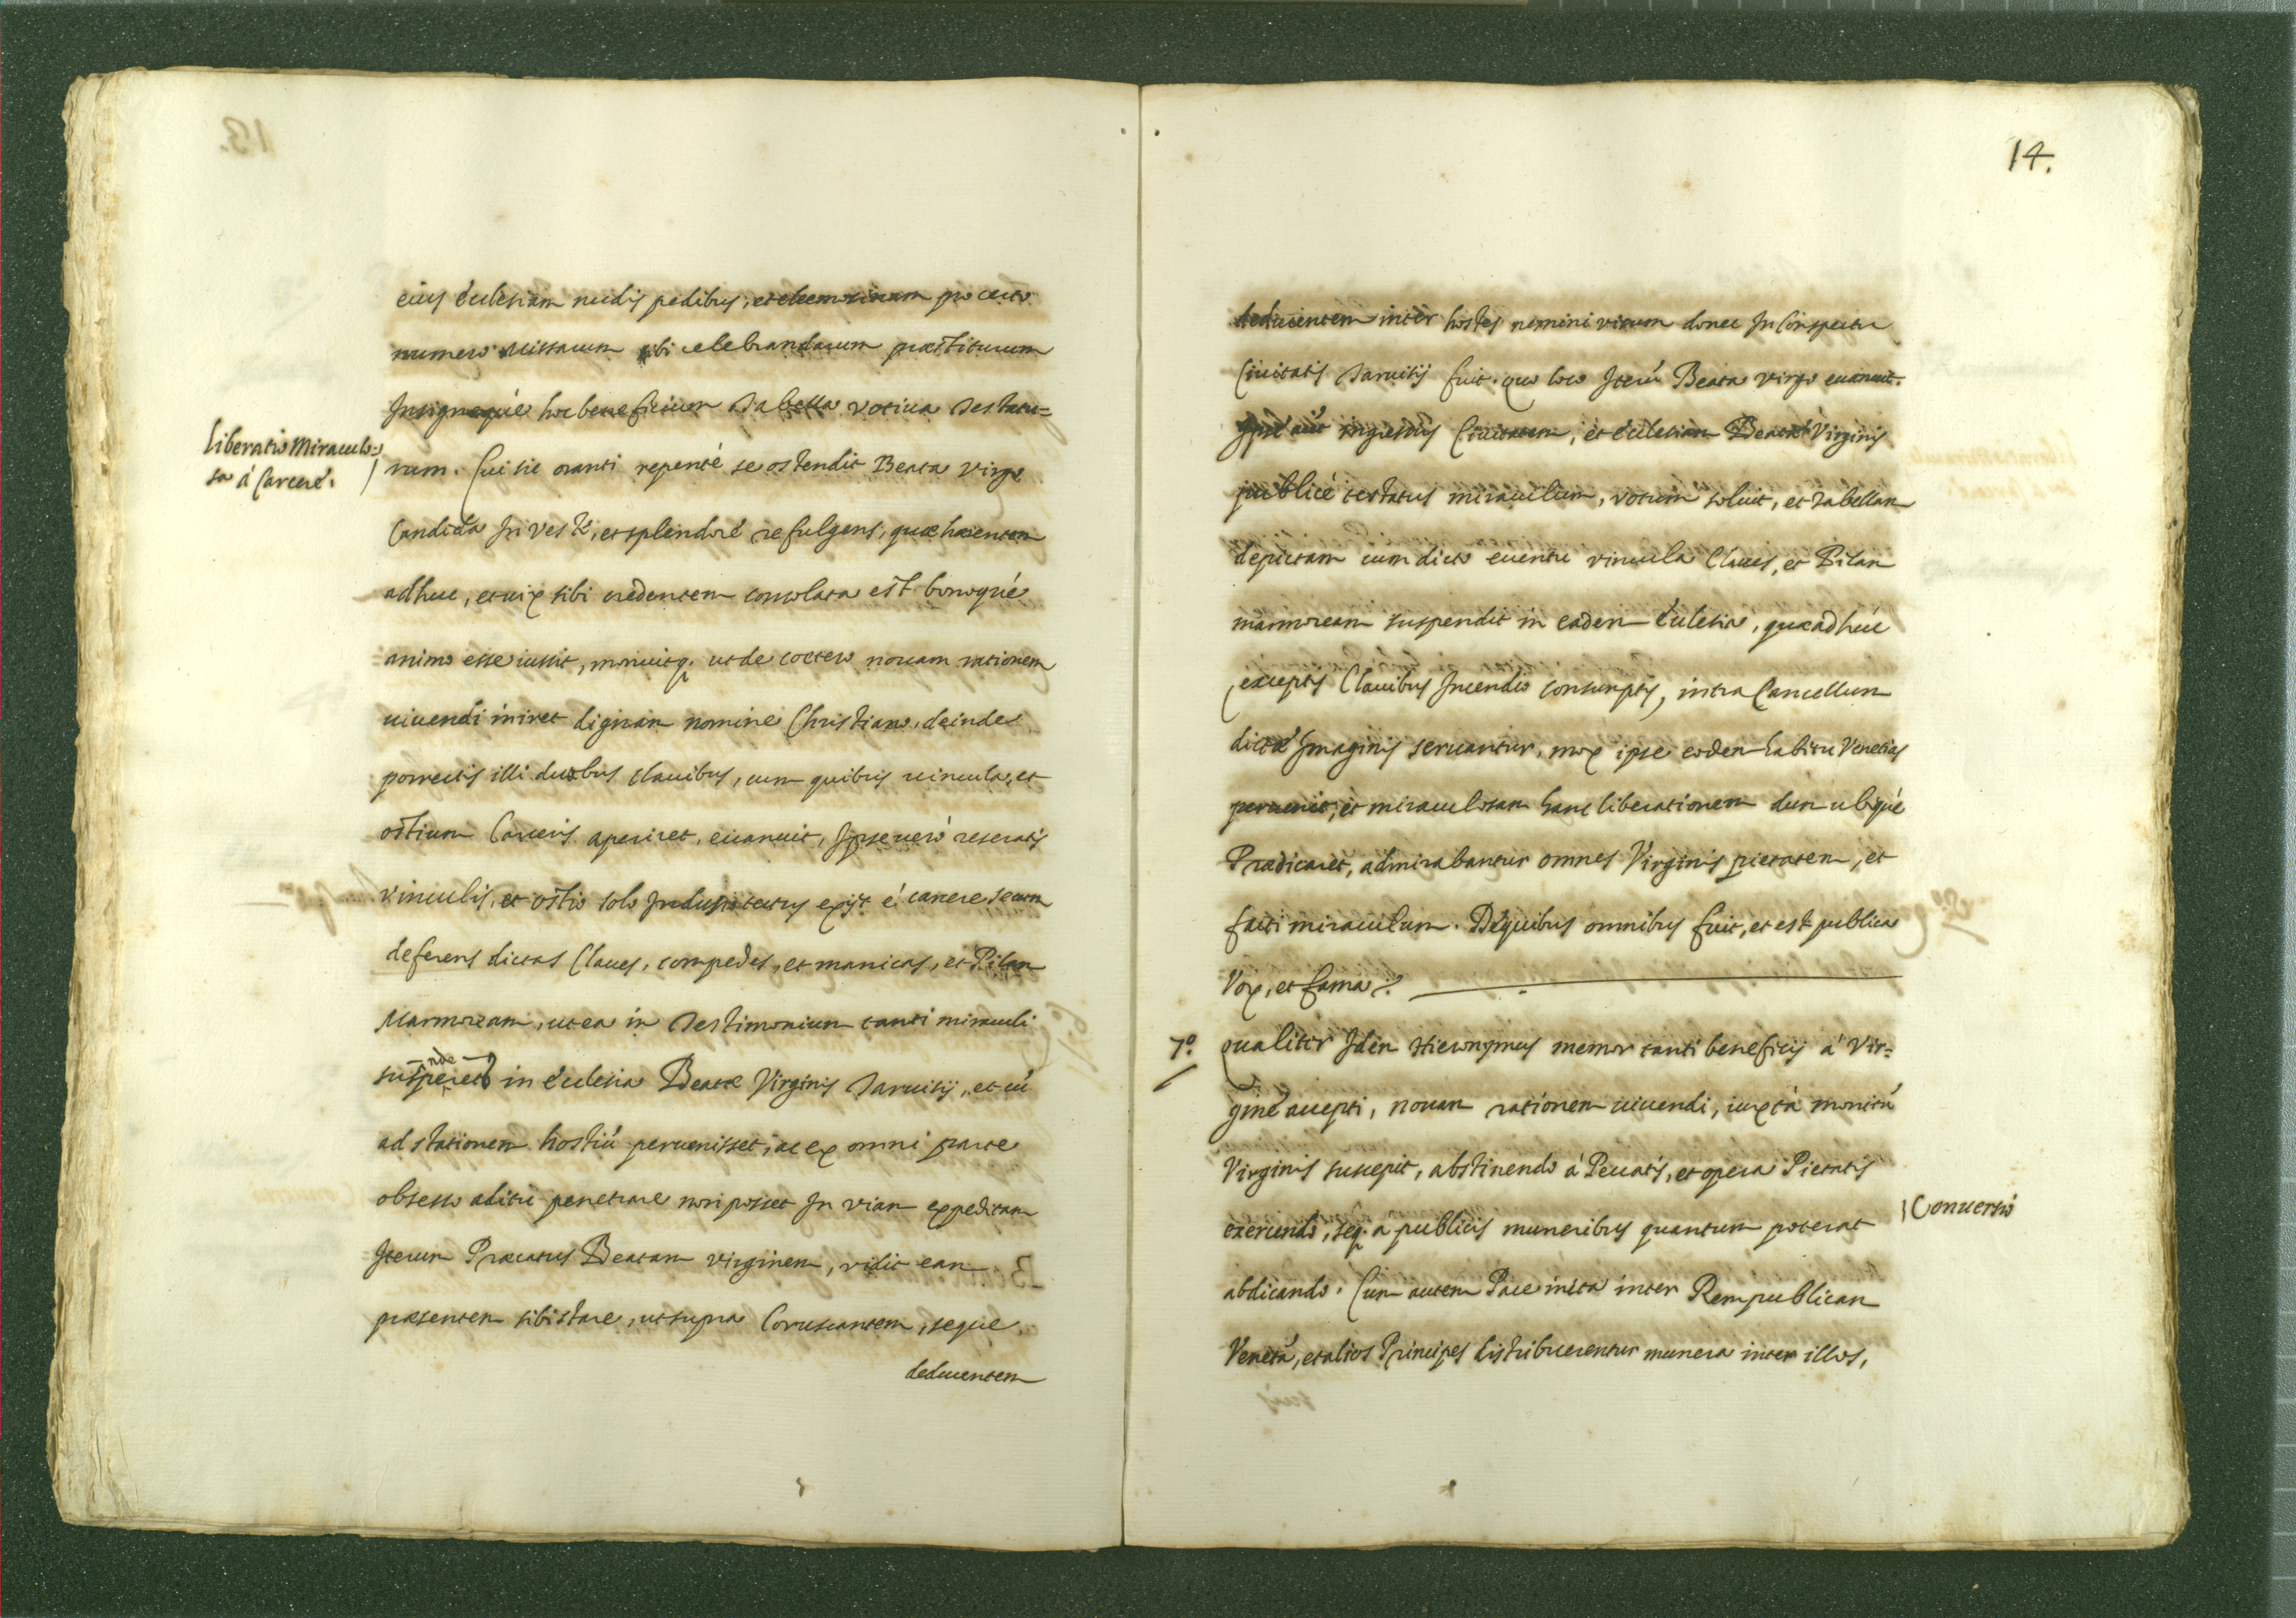 eius Ecclesiam nudis pedibus, et eleemosinam pro certo
numero Missarum sibi celebrandarum præstiturum
Insigneque hoc beneficium Tabella votiua Testatu=
Liberatio Miraculo=
sa á Carcere.
rum. Cui sic oranti repenté se ostendit Beata Virgo
Candida In veste, et splendore refulgens, quæ hærentem
adhuc, et uix sibi credentem consolata est bonoque
animo esse iussit, monuitq. ut de cœtero nouam rationem
uiuendi iniret dignam nomine Christiano, deinde
porrectis illi duobus clauibus, cum quibus uincula, et
ostium Carceris aperiret, euanuit, Ipse veró reseratis
vinculis, et ostio solo Indusio tectus exijt é carcere secum
deferens dictas Claues, compedes, et manicas, et Pilam
Marmoream, ut ea in Testimonium tanti miraculi
nde
susperet in Ecclesia Beatæ Virginis Taruisij, et cú
ad stationem hostiú peruenisset, ac ex omni parte
obsesso aditu penetrare non posset In viam expeditam
Iterum Præcatus Beatam virginem, vidit eam
præsentem sibi stare, ut supra Coruscantem, seque
deducentem
14.
deducentem inter hostes nemini visum donec In Conspectu
Ciuitatis Taruisij fuit. quo loco Iterú Beata virgo euanuit.
Ipse aút ingressus Ciuitatem, et Ecclesiam Beatæ Virginis
publicé testatus miraculum, votum soluit, et Tabellam
depictam cum dicto euentu vincula Claues, et Pilam
marmoream suspendit in eadem Ecclesia, quæ adhúc
exceptis Clauibus Incendio consumptis, intra Cancellum
dictæ Imaginis seruantur, mox ipse eodem habitu Venetias
peruenit, et miraculosam hanc liberationem dum ubique
Prædicaret, admirabantur omnes Virginis pietatem, et
facti miraculum. De quibus omnibus fuit, et est publica
Vox, et fama.
7º. qualiter Idem Hieronymus memor tanti beneficij á Vir=
gine accepti, nouam rationem uiuendi, iuxtá monitú
Virginis suscepit, abstinendo á Peccatis, et opera Pietatis
exercendo, seq. a publicis muneribus quantum poterat
Conuersio
abdicando. Cum autem Pace inita inter Rempublicam
Venetá, et alios Principes distribuerentur munera inter illos,